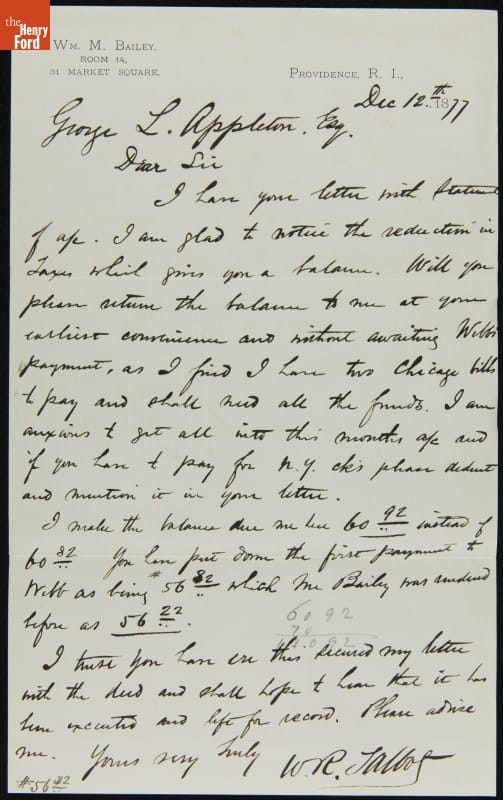 the
Henry
Ford
WM. M. BAILEY,
ROOM 14,
31 MARKET SQUARE,
PROVIDENCE, R. I.,
Dec 12th 1877
George L. Appleton, Esq.
Dear Sir
I have your letter with statement
of a/c. I am glad to notice the reduction in
Taxes which gives you a balance. Will you
please return the balance to me at your
earliest convenience and without awaiting Webb's
payment, as I find I have two Chicago bills
to pay and shall need all the funds. I am
anxious to get all into this months a/c and
if you have to pay for N.Y. ck's please deduct
and mention it in your letter.
I make the balance due me here 60 92 instead of
60 82 You have put down the first payment to
Webb as being $56 32 which Mr Bailey was
before as 56 22.
60 92
I trust you have ere this secured my letter
with the deed and shall hope to hear that it has
been executed and left for record. Please advise
me. Yours very truly W. R. Talbot
$56 32